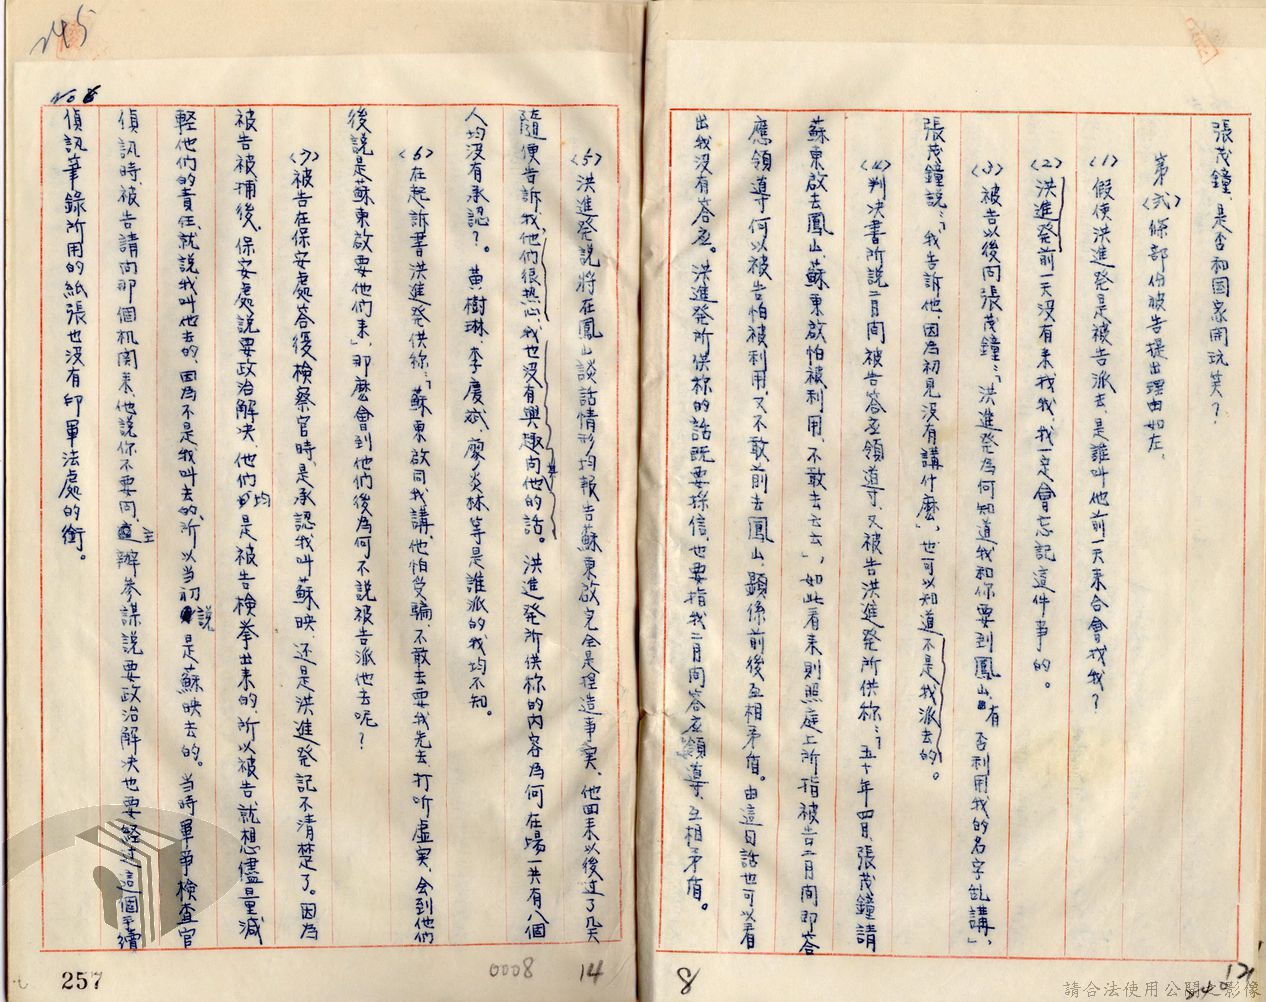 張茂鐘,是否和國家開玩笑?
第〈弍〉條部份被告提出理由如左,
〈1〉假使洪進発是被告派去,是誰叫他前一天來合會找我?
〈2〉洪進発前一天沒有來找我,我一定會忘記這件事的。
〈3〉被告以後向張茂鐘:「洪進発為何知道我和你要到鳳山,有否利用我的名字乱講」,
張茂鐘說:「我告訴他,因為初見沒有講什麼」,也可以知道不是我派去的。
〈4〉判决書所說二月間被告答應領導,又被告洪進発所供称:「五十年四月,張茂鐘請
蘇東啟去鳳山蘇東啟怕被利用,不敢去云云」,如此看來則照庭上所指被告二月間即答
應領導何以被告怕被利用,又不敢前去鳳山,顯係前後互相矛盾。由這句話也可以看
出我沒有答应。洪進発所供称的話既要採信,也要指我二月間答应領導,互相矛盾。
8
〈5〉洪進発説將在鳳山談話情形均報告蘇東啟完全是捏造事実,他回來以後过了几天
隨便告訴我,他們很热心,我也沒有興趣向他的話。洪進発所供称的內容為何在場一共有八個
人均沒有承認?。黃樹琳,李慶斌,廖炎林等是誰派的我均不知。
〈6〉在起訴書洪進発供称:「蘇東啟同我講,他怕受騙,不敢去要我先去打听虛実,会到他們
後説是蘇東啟要他們來」,那麼會到他們後為何不説被告派他去呢?
〈7〉被告在保安處答復検察官時,是承認我叫蘇映,还是洪進発記不清楚了。因為
被告被捕後,保安處説要政治解决,他們均是被告検举出來的,所以被告就想儘量減
軽他們的責任,就說我叫他去的,因為不是我叫去的,所以当初説是蘇映去的。当時軍事検査官
偵訊時,被告請问那個机関來他說你不要问,主辦參謀説要政治解决也要経过這個手續
偵訊筆錄所用的紙張也沒有印軍法處的銜。
No 6
245
257
0008
14
請合法使用公開之影像